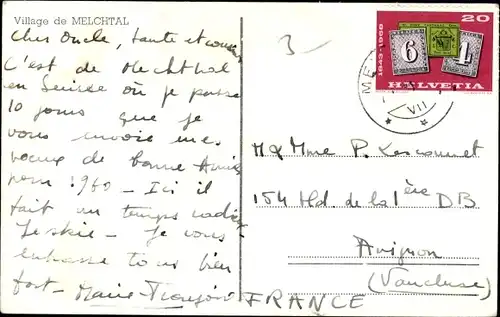 Village de MELCHTAL
Cher Oncle, tante et cousin
C'est de Melchthal
en Suisse où je passe
10 jours que je
vous envoie mes
voeux de bonne Année
pour 1969 - Ici il
fait un temps
Je skie - Je vous
embrasse tous bien
fort - Marie-Françoise
3-
HELVETIA
20
1843-1968
6
4
ME
VII
M & Mme P.
154 Bld. de la 1ère DB
Avignon
(Vaucluse)
FRANCE